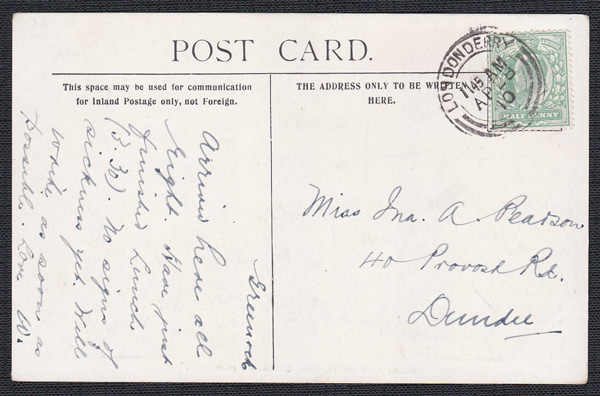 POST CARD.
This space may be used for communication
for Inland Postage only, not Foreign.
THE ADDRESS ONLY TO BE WRITTEN
HERE.
LONDONDERRY
11 45 AM
AP
10
HALF PENNY
Greenock
Arrived here all
right. Have just
finished Lunch
(1.30). No signs of
sickness yet. Will
write as soon as
possible. Love W.
Miss Ina. A. Pearson
40 Provost Rd.
Dundee